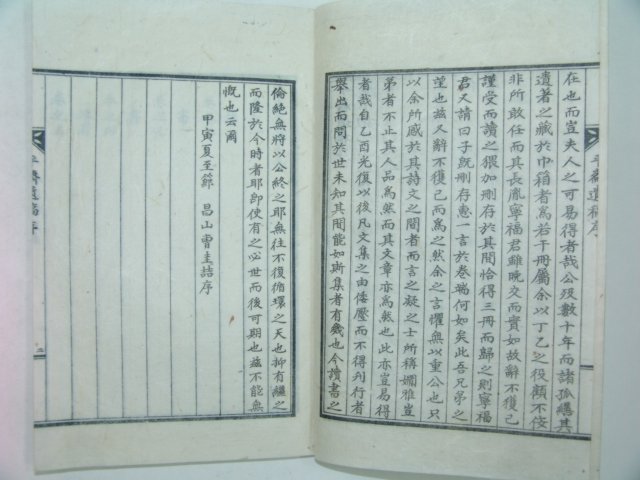 在也而豈夫人之可易得者哉公沒數十年而諸孤繼其
遺著之藏於巾箱者爲若干冊屬余以丁乙之役顧不佞
非所敢任而其長胤寧福君雖晩交而實如故辭不獲已
謹受而讀之猥加刪存於其間恰得三冊而歸之則寧福
君又請曰子旣刪存惠一言於卷端何如矣此吾兄弟之
望也玆又辭不獲已而爲之然余之言懼無以重公也只
以余所感於其詩文之間者而言之凝之士所稱嫺雅豈
弟者不止其人品爲然而其文章亦爲然也此亦豈易得
者哉自乙酉光復以後凡文集之由倭壓而不得刋行者
擧出而問於世未知其間能如斯集者有幾也今讀書之
平齋遺稿序
倫絶無將以公終之耶無往不復循環之天也抑有繼之
而隆於今時者耶卽使有之必世而後可期也玆不能無
慨也云爾
甲寅夏至節 昌山曺圭喆序
平齋遺稿序
二